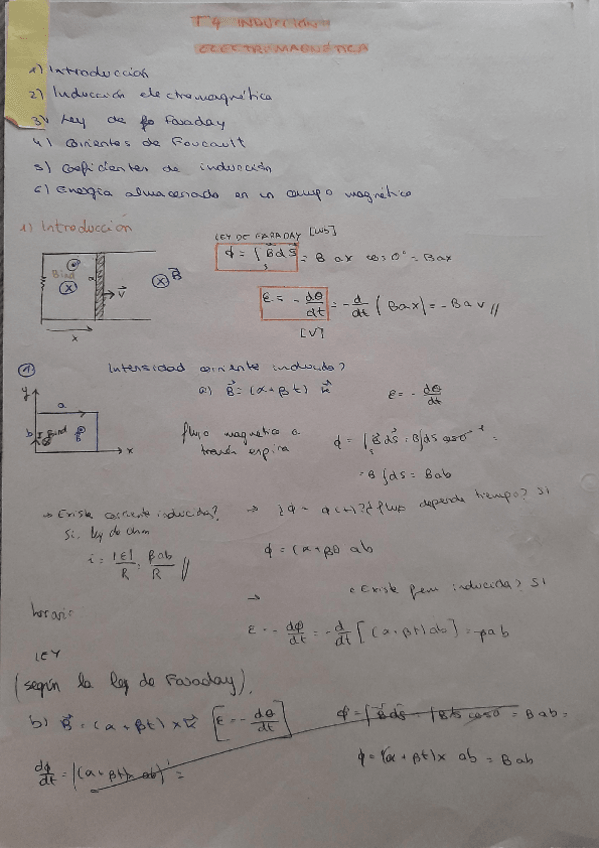 T4 INDUCCIÓN
ELECTROMAGNÉTICA
1) Introducción
2) Inducción electromagnética
3) Ley de Faraday
4) Corrientes de Foucault
5) Coeficientes de inducción
6) Energía almacenada en un campo magnético
1) Introducción
LEY DE FARADAY [Wb]
ϕ = ∫s B⃗ dS⃗ = B ax cos 0° = Bax
Bind
a
v⃗
B⃗
x
ε = - dθ/dt = - d/dt (Bax) = - B a v //
[V]
① Intensidad corriente inducida?
a) B⃗ = (α + βt) k⃗
ε = - dθ/dt
y
a
b
x
flujo magnético a
través espira
ϕ = ∫s B⃗ dS⃗ = B∫ds cos 0° =
= B∫ds = Bab
→ Existe corriente inducida?
Si. ley de Ohm
i = |ε|/R = βab/R //
→ ¿ϕ = ϕ(t)? ¿flujo depende tiempo? Si
ϕ = (α + βt) ab
→ • Existe fem inducida? Si
ε = - dϕ/dt = - d/dt [(α + βt) ab] = -βab
horario
LEY
(según la ley de Faraday).
b) B⃗ = (α + βt) x k⃗ [ε = - dθ/dt]
ϕ = ∫ B⃗ dS⃗ = ∫B ds cos 0 = Bab =
dϕ/dt = |(α + βt)x ab|' =
ϕ = (α + βt) x ab = Bab